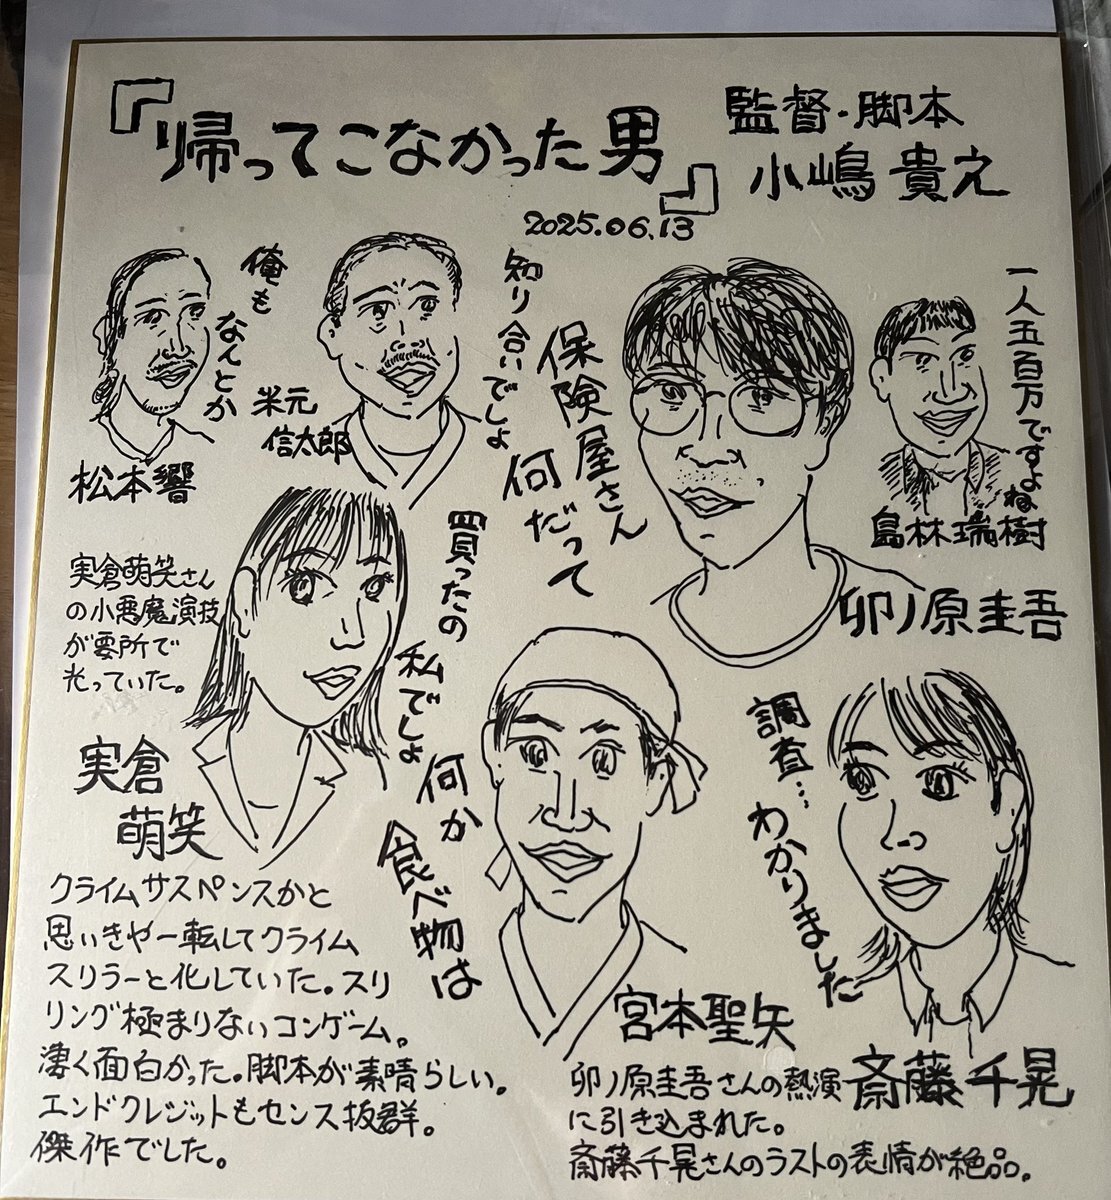 『帰ってこなかった男』
監督・脚本
小嶋貴之
2025.06.13
俺も
なんとか
松本響
米元
信太郎
知り合いでしょ
保険屋さん
何だって
卯ノ原圭吾
一人五百万ですよね
島林瑞樹
実倉萌笑さん
の小悪魔演技
が要所で
光っていた。
実倉
萌笑
買ったの
私でしょ
何か
食べ物は
宮本聖矢
調査…
わかりました
斎藤千晃
クライムサスペンスかと
思いきや一転してクライム
スリラーと化していた。スリ
リング極まりないコンゲーム。
凄く面白かった。脚本が素晴らしい。
エンドクレジットもセンス抜群。
傑作でした。
卯ノ原圭吾さんの熱演
に引き込まれた。
斎藤千晃さんのラストの表情が絶品。